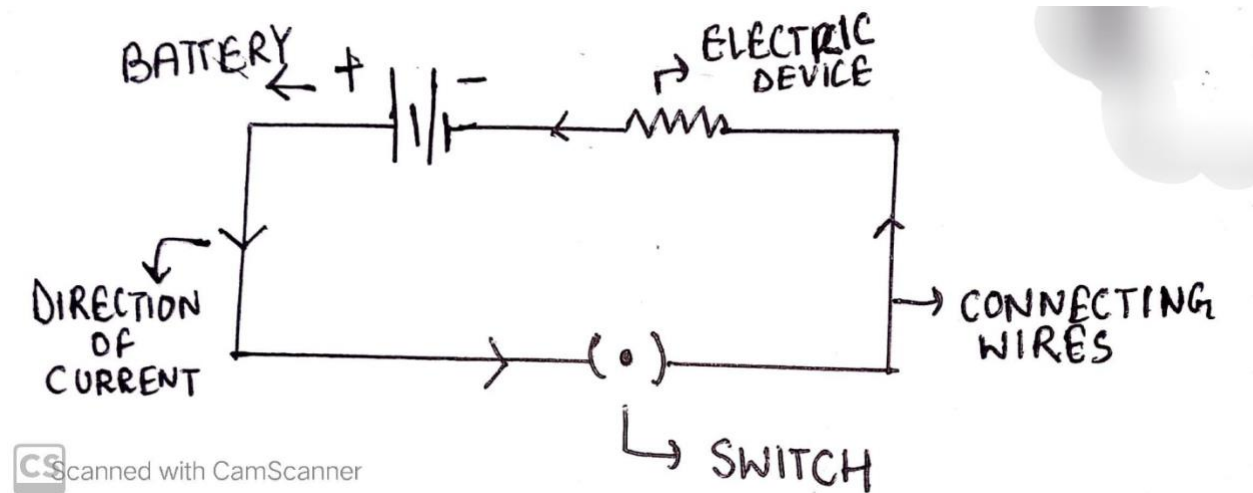 BATTERY
+
-
ELECTRIC
DEVICE
DIRECTION
OF
CURRENT
CONNECTING
WIRES
SWITCH
CS Scanned with CamScanner